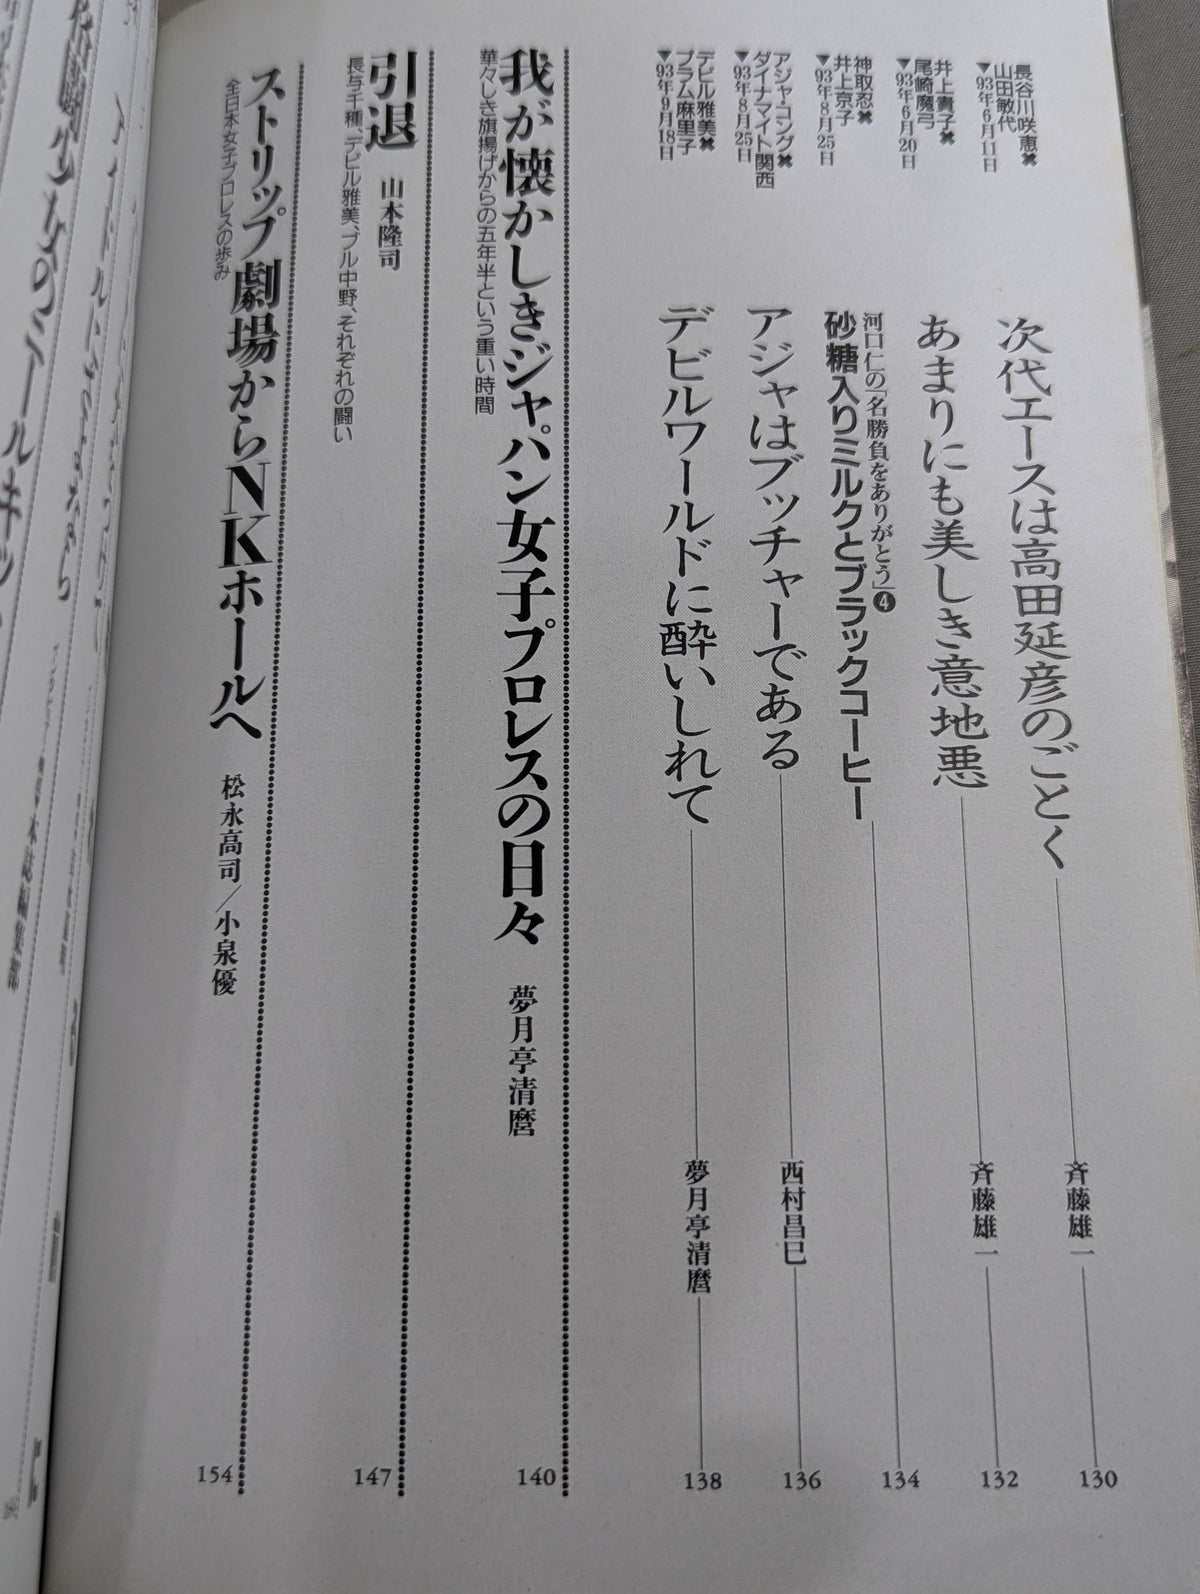 長谷川咲恵✖
山田敏代
▼93年6月11日
次代エースは高田延彦のごとく
斉藤雄一
130
井上貴子✖
尾崎魔弓
▼93年6月20日
あまりにも美しき意地悪
斉藤雄一
132
神取忍✖
井上京子
▼93年8月25日
河口仁の「名勝負をありがとう」❹
砂糖入りミルクとブラックコーヒー
134
アジャ・コング✖
ダイナマイト関西
▼93年8月25日
アジャはブッチャーである
西村昌巳
136
デビル雅美✖
プラム麻里子
▼93年9月18日
デビルワールドに酔いしれて
夢月亭清麿
138
我が懐かしきジャパン女子プロレスの日々 夢月亭清麿
華々しき旗揚げからの五年半という重い時間
140
引退 山本隆司
長与千種、デビル雅美、ブル中野、それぞれの闘い
147
ストリップ劇場からNKホールへ 松永高司／小泉優
全日本女子プロレスの歩み
154
本誌編集部